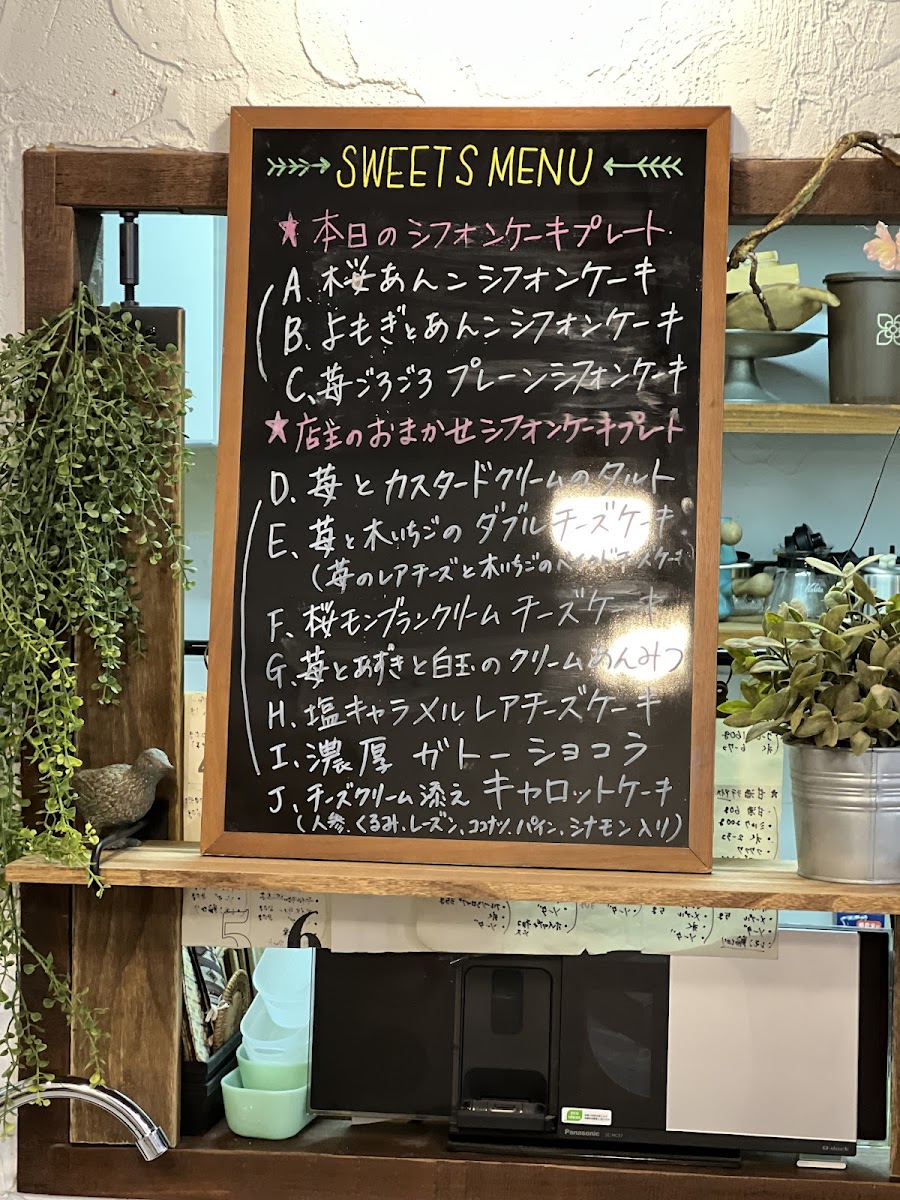 SWEETS MENU
★本日のシフォンケーキプレート
A. 桜あんこシフォンケーキ
B. よもぎとあんこシフォンケーキ
C. 苺ごろごろ プレーンシフォンケーキ
★店主のおまかせシフォンケーキプレート
D. 苺とカスタードクリームのタルト
E. 苺と木いちごの ダブルチーズケーキ
(苺のレアチーズと木いちごのベイクドチーズケーキ
F. 桜モンブランクリーム チーズケーキ
G. 苺とあずきと白玉のクリームあんみつ
H. 塩キャラメルレアチーズケーキ
I. 濃厚 ガトーショコラ
J. チーズクリーム添え キャロットケーキ
(人参、くるみ、レーズン、ココナツ、パイン、シナモン入り)
5 6
Panasonic